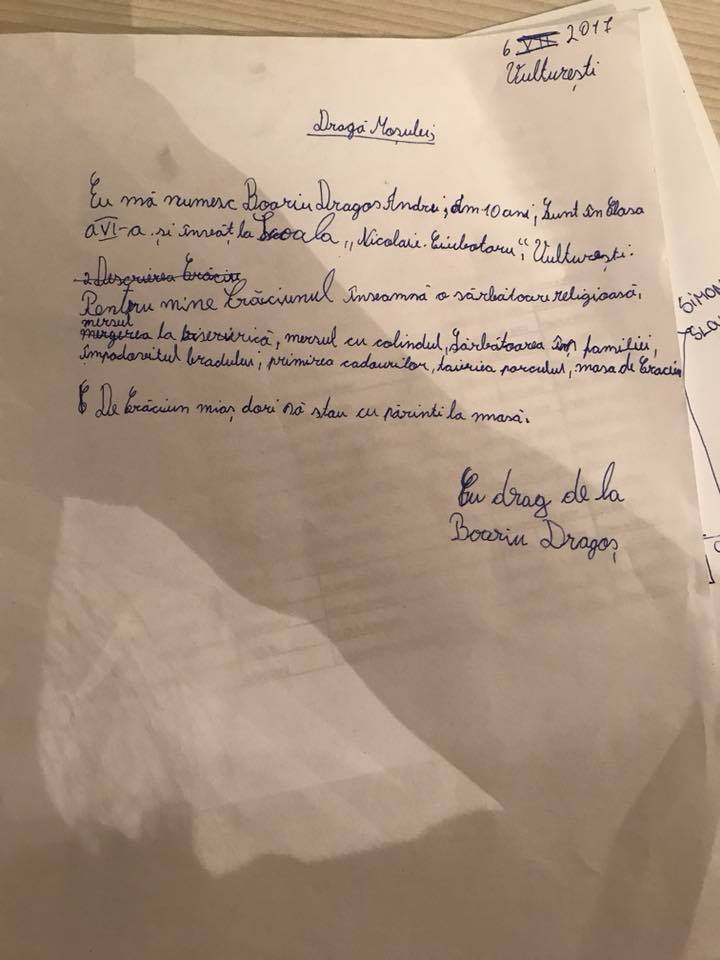 6 VII 2017
Vulturești
Dragă Moșului
Eu mă numesc Boariu Dragos Andrei, Am 10 ani, Sunt în Clasa
a VI-a și învăț la Scoala „Nicolaie Ciubotaru", Vulturești.
2 Descrierea Crăciu
Pentru mine Crăciunul înseamnă o sărbătoare religioasă,
mersul
mergerea la biserică, mersul cu colindul, Sărbătoarea în familiei,
împodovitul bradului, primirea cadourilor, taierea porcului, masa de Craciun
De Crăciun miaș dori să stau cu părinti la masă.
Cu drag de la
Boariu Dragoș
SIMON